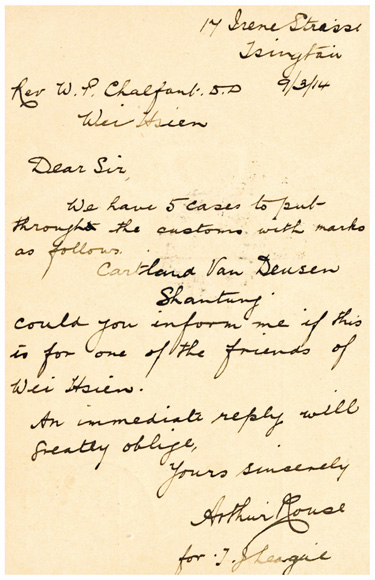 17 Irene Strasse
Tsingtau
Rev W. P. Chalfant. D.D 9/3/14
Wei Hsien
Dear Sir,
We have 5 cases to put
through the customs with marks
as follows.
Cartland Van Deusen
Shantung
could you inform me if this
is for one of the friends of
Wei Hsien.
An immediate reply will
greatly oblige,
Yours sincerely
Arthur Rouse
for